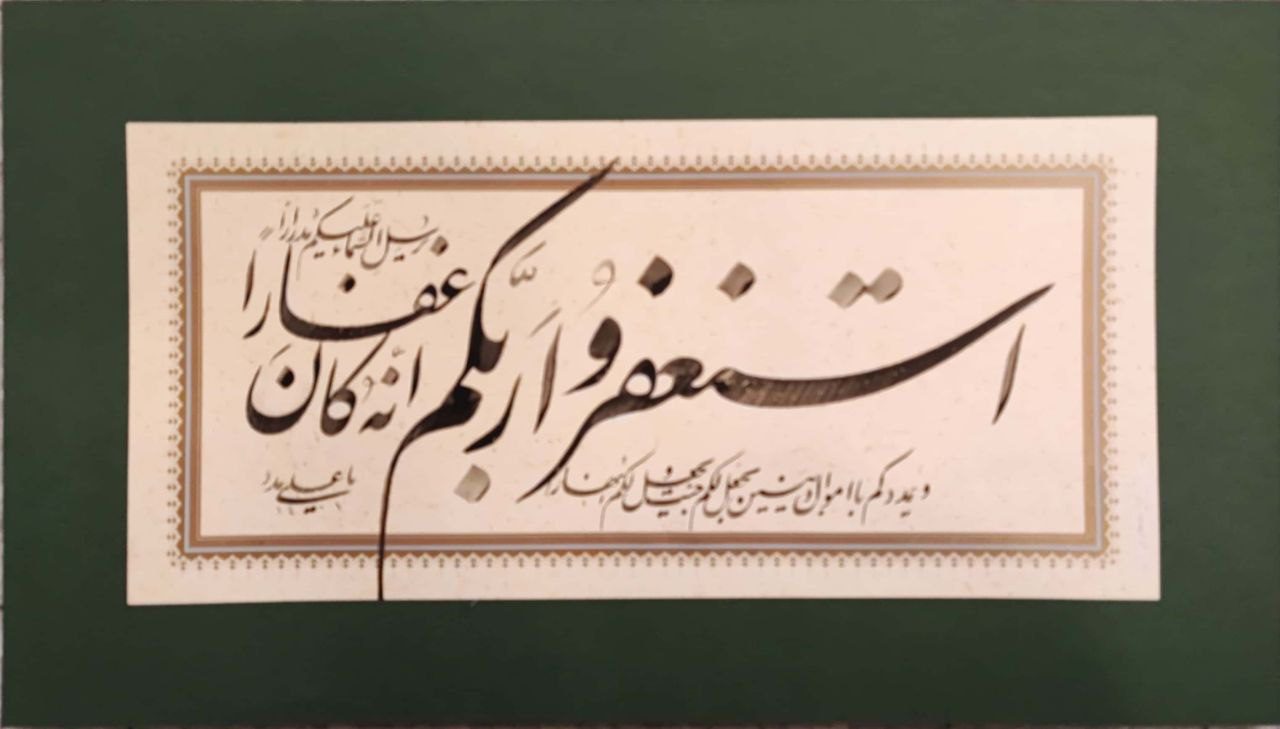 استغفروا ربّكم انّهُ كانَ غفارًا
يرسل السماء عليكم مدرارًا
و يمددكم باموال و بنين و يجعل لكم جنت و يجعل لكم انهارا